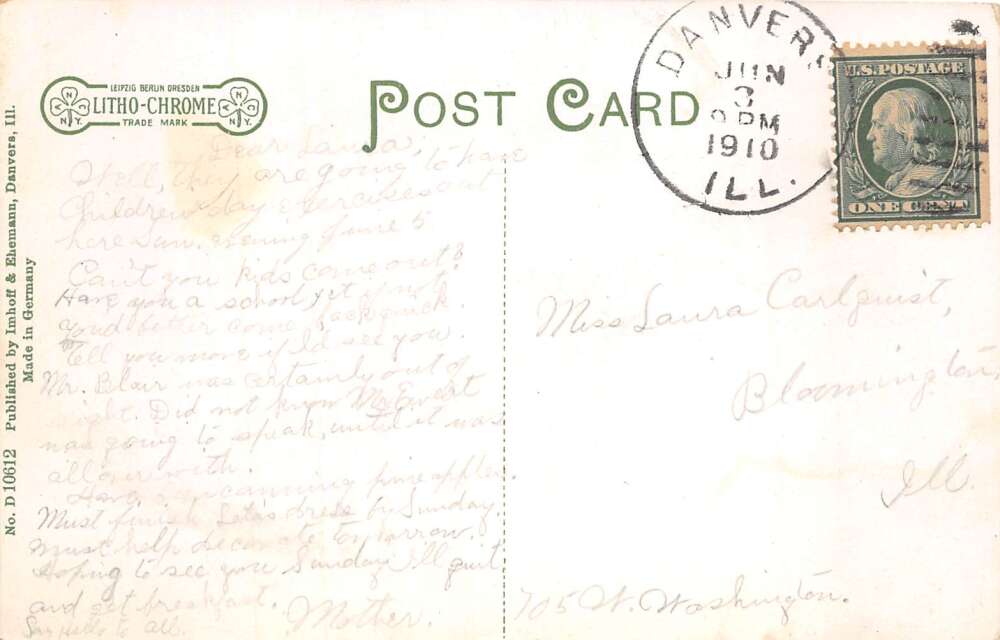 LEIPZIG BERLIN DRESDEN
LITHO-CHROME
TRADE MARK
N.Y.
POST CARD
DANVERS
JUN
3
PM
1910
ILL.
U.S. POSTAGE
ONE CENT
No. D 10612 Published by Imhoff & Ehemann, Danvers, Ill.
Made in Germany
Dear Laura,
Well, they are going to have
Children day exercises out
here Sun. evening June 5
Can't you kids come out?
Have you a school yet if not
you'd better come back quick
tell you more if I'd see you.
Mr. Blair was certainly out of
sight. Did not know Mr. Ewert
was going to speak, until it was
all over with.
canning pineapples
Must finish dress by Sunday.
Must help decorate tomorrow.
Hoping to see you Sunday I'll quit
and get breakfast.
Mother.
Say Hello to all.
Miss Laura Carlquist,
Bloomington,
Ill.
705 W. Washington.